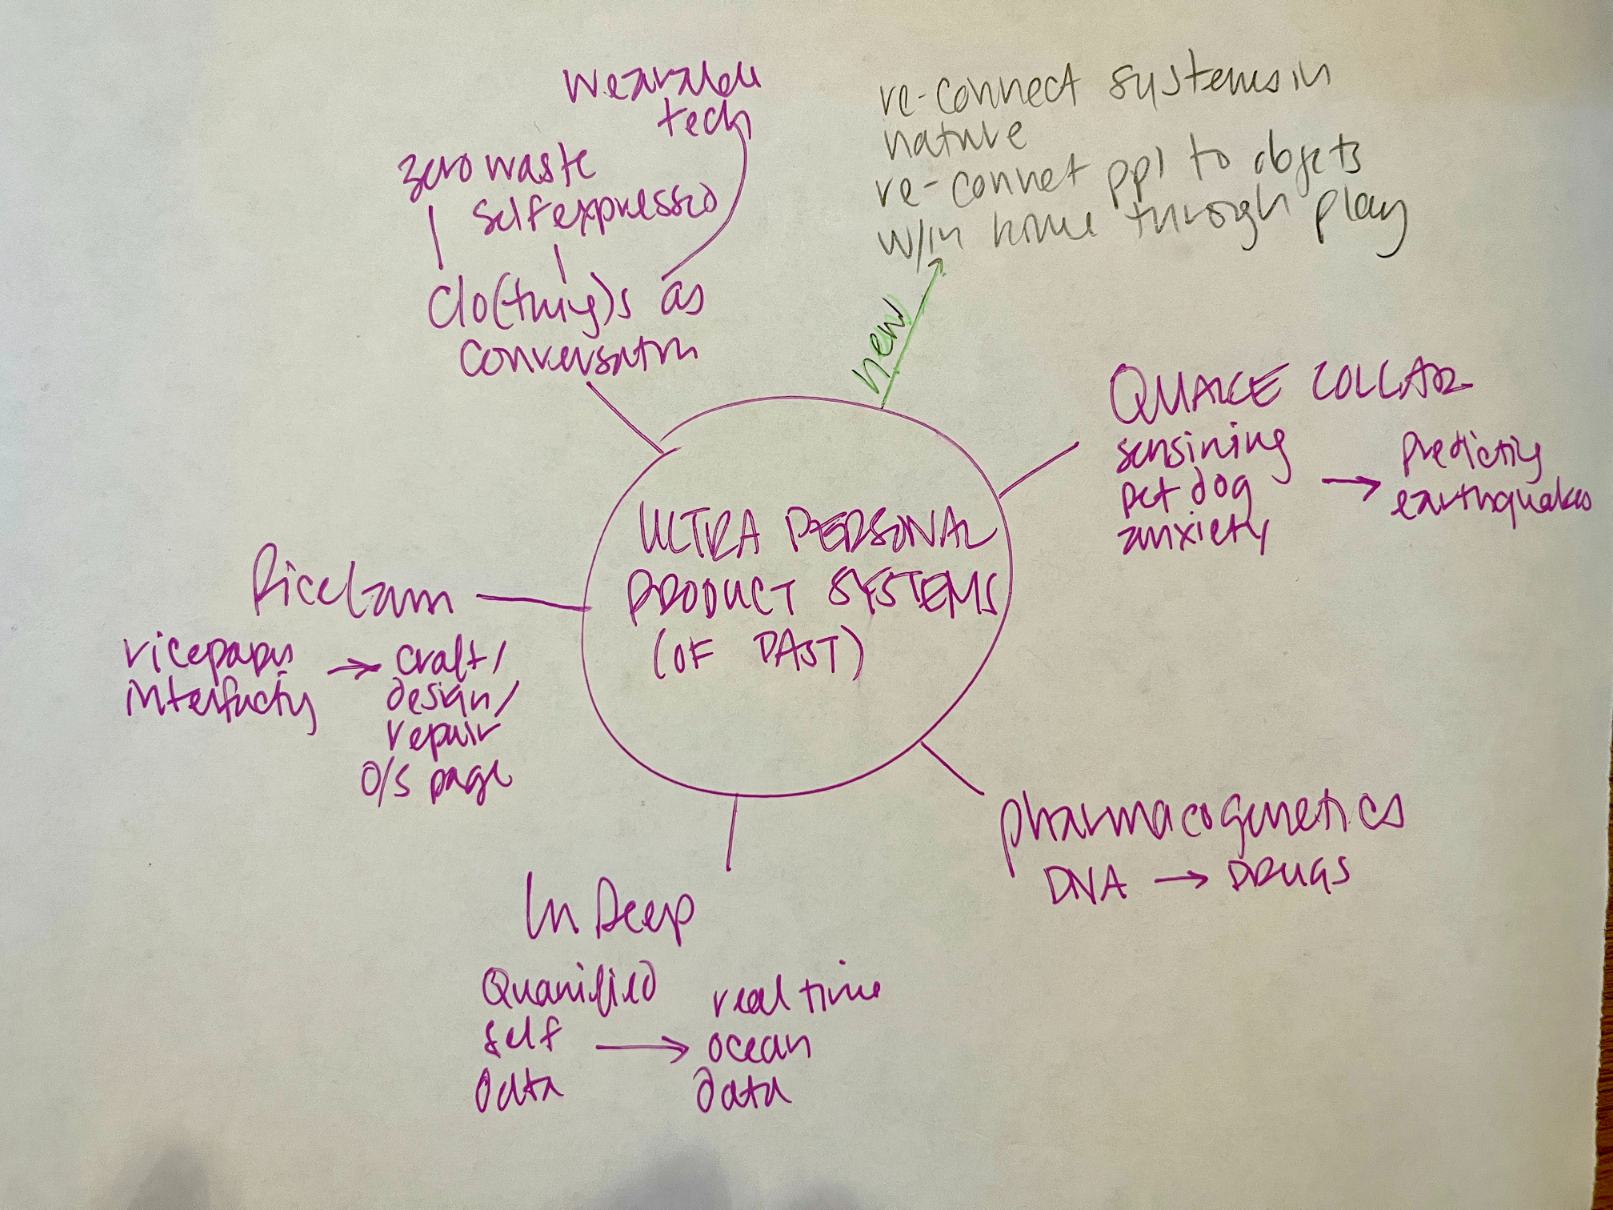 wearable
tech
zero waste
self expression
Clo(thing)s as
conversation
re-connect systems in
nature
re-connet ppl to objets
w/in home through play
new
QUAKE COLLAR
sensining
pet dog
anxiety
→ predicting
earthquakes
ULTRA PERSONAL
PRODUCT SYSTEMS
(OF PAST)
ricepaper
interfacting
→ craft/
design/
repair
O/S page
pharmacogenetics
DNA → DRUGS
In Deep
Quanified
self
data
→ real time
ocean
data